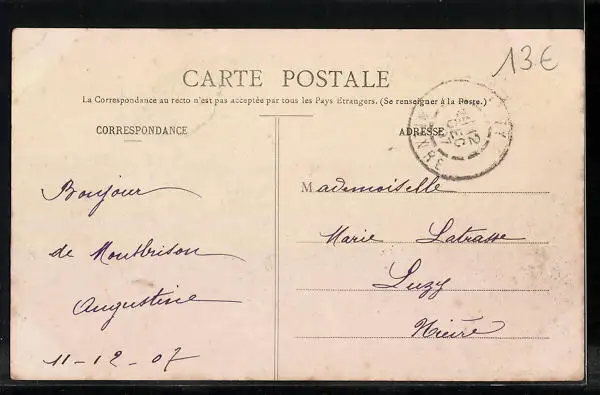 13€
CARTE POSTALE
La Correspondance au recto n'est pas acceptée par tous les Pays Etrangers. (Se renseigner à la Poste.)
CORRESPONDANCE
ADRESSE
12
DEC
Bonjour
de Montbrison
Augustine
11-12-07
Mademoiselle
Marie Latrasse
Luzy
Nièvre